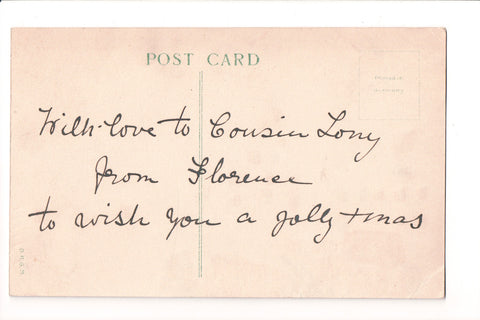 POST CARD
With love to Cousin Tony
from Florence
to wish you a jolly xmas